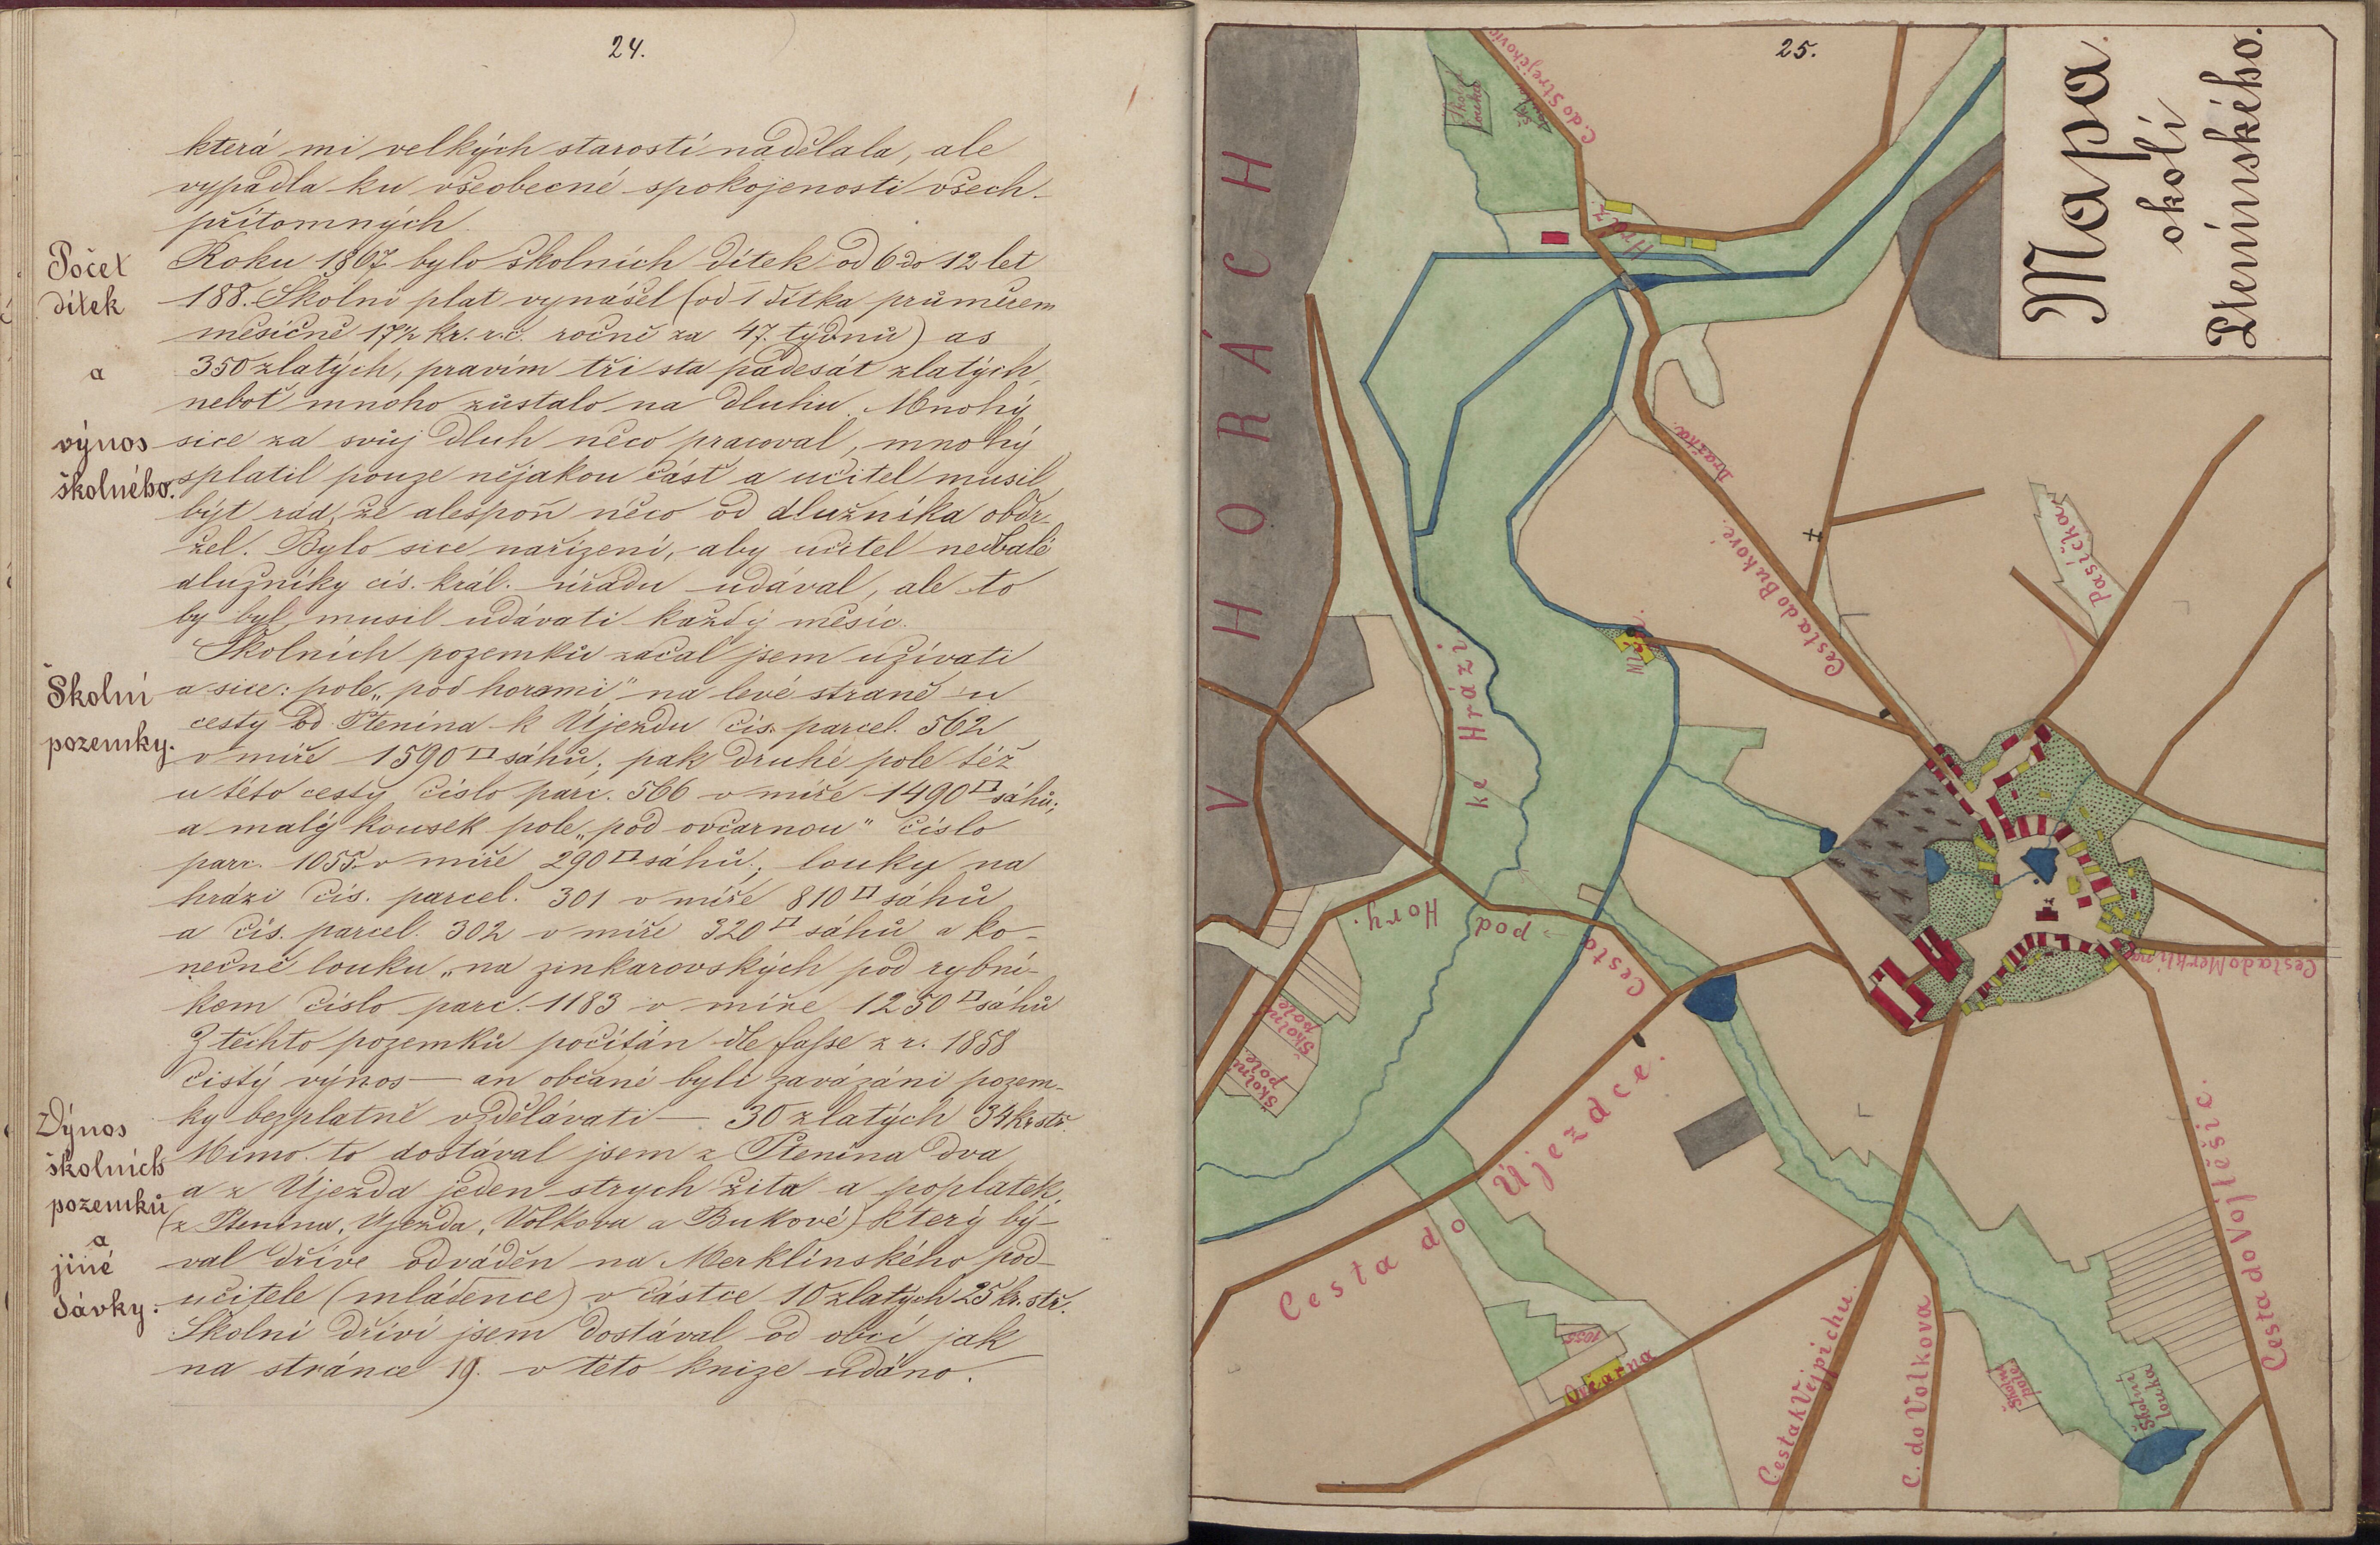 24.
která mi velkých starostí nadělala, ale
vypadla ku všeobecné spokojenosti všech
přítomných.
Počet
dítek
a
výnos
školného.
Roku 1867 bylo školních dítek od 6 do 12 let
188. Školní plat vynášel (od 1 dítka průměrem
měsíčně 17½ kr. r.č. ročně za 47 týdnů) as
350 zlatých, pravím tři sta padesát zlatých,
neboť mnoho zůstalo na dluhu. Mnohý
sice za svůj dluh něco pracoval, mnohý
splatil pouze nějakou část a učitel musil
být rád, že alespoň něco od dlužníka obdr-
žel. Bylo sice nařízení, aby učitel nedbalé
dlužníky cís. král. úřadu udával, ale to
by byl musil udávati každý měsíc.
Školní
pozemky.
Školních pozemků začal jsem užívati
a sice: pole „pod horami" na levé straně u
cesty od Ptenína k Újezdu čís. parcel. 562
v míře 1590 □ sáhů; pak druhé pole též
u této cesty číslo parc. 566 v míře 1490 □ sáhů;
a malý kousek pole „pod ovčarnou" číslo
parc. 1055 v míře 290 □ sáhů; louky na
hrázi čís. parcel. 301 v míře 810 □ sáhů
a čís. parcel. 302 v míře 320 □ sáhů a ko-
nečně louku „na zinkarovských pod rybní-
kem číslo parc. 1183 v míře 1250 □ sáhů
Z těchto pozemků počítán dle fasse z r. 1858
čistý výnos — an občané byli zavázáni pozem-
ky bezplatně vzdělávati — 30 zlatých 34 kr stř.
Výnos
školních
pozemků
a
jiné
dávky.
Mimo to dostával jsem z Ptenína dva
a z Újezda jeden strych žita a poplatek
(z Ptenína, Újezda, Volkova a Bukové) který bý-
val dříve odváděn na Merklínského pod-
učitele (mládence) v částce 10 zlatých 25 kr. stř.
Školní dříví jsem dostával od obcí jak
na stránce 19. v této knize udáno.
25.
Mapa
okolí
Ptenínského.
V HORÁCH
C. do Strejchkovic
Školní
louka
Hráz
Draška.
Cesta do Bukové.
Pasička
ke Hrázi
Cesta pod Hory.
Školní
pole
Školní
pole
Cesta do Merklína
Cesta do Újezdce.
1055
Ovčarna
Cesta k Vejpichu
C. do Volkova
Školní
pole.
Školní
louka
Cesta do Vojtěšic.